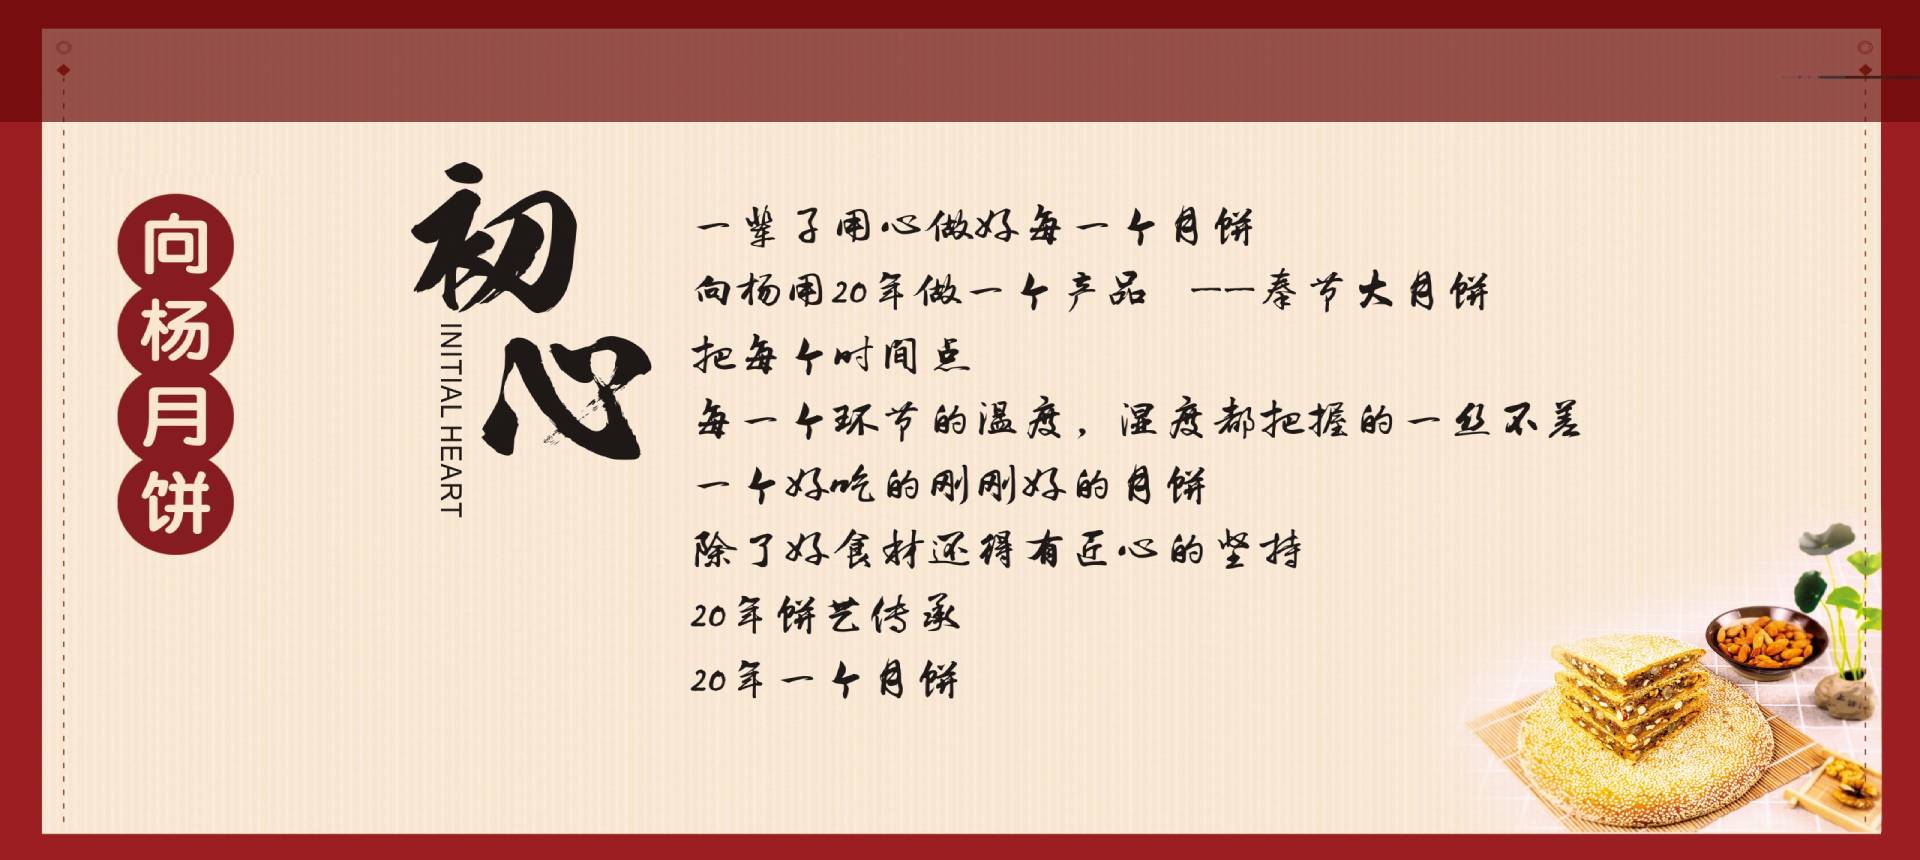 向杨月饼
初心
INITIAL HEART
一辈子用心做好每一个月饼
向杨用20年做一个产品 一一奉节大月饼
把每个时间点
每一个环节的温度，湿度都把握的一丝不差
一个好吃的刚刚好的月饼
除了好食材还得有匠心的坚持
20年饼艺传承
20年一个月饼